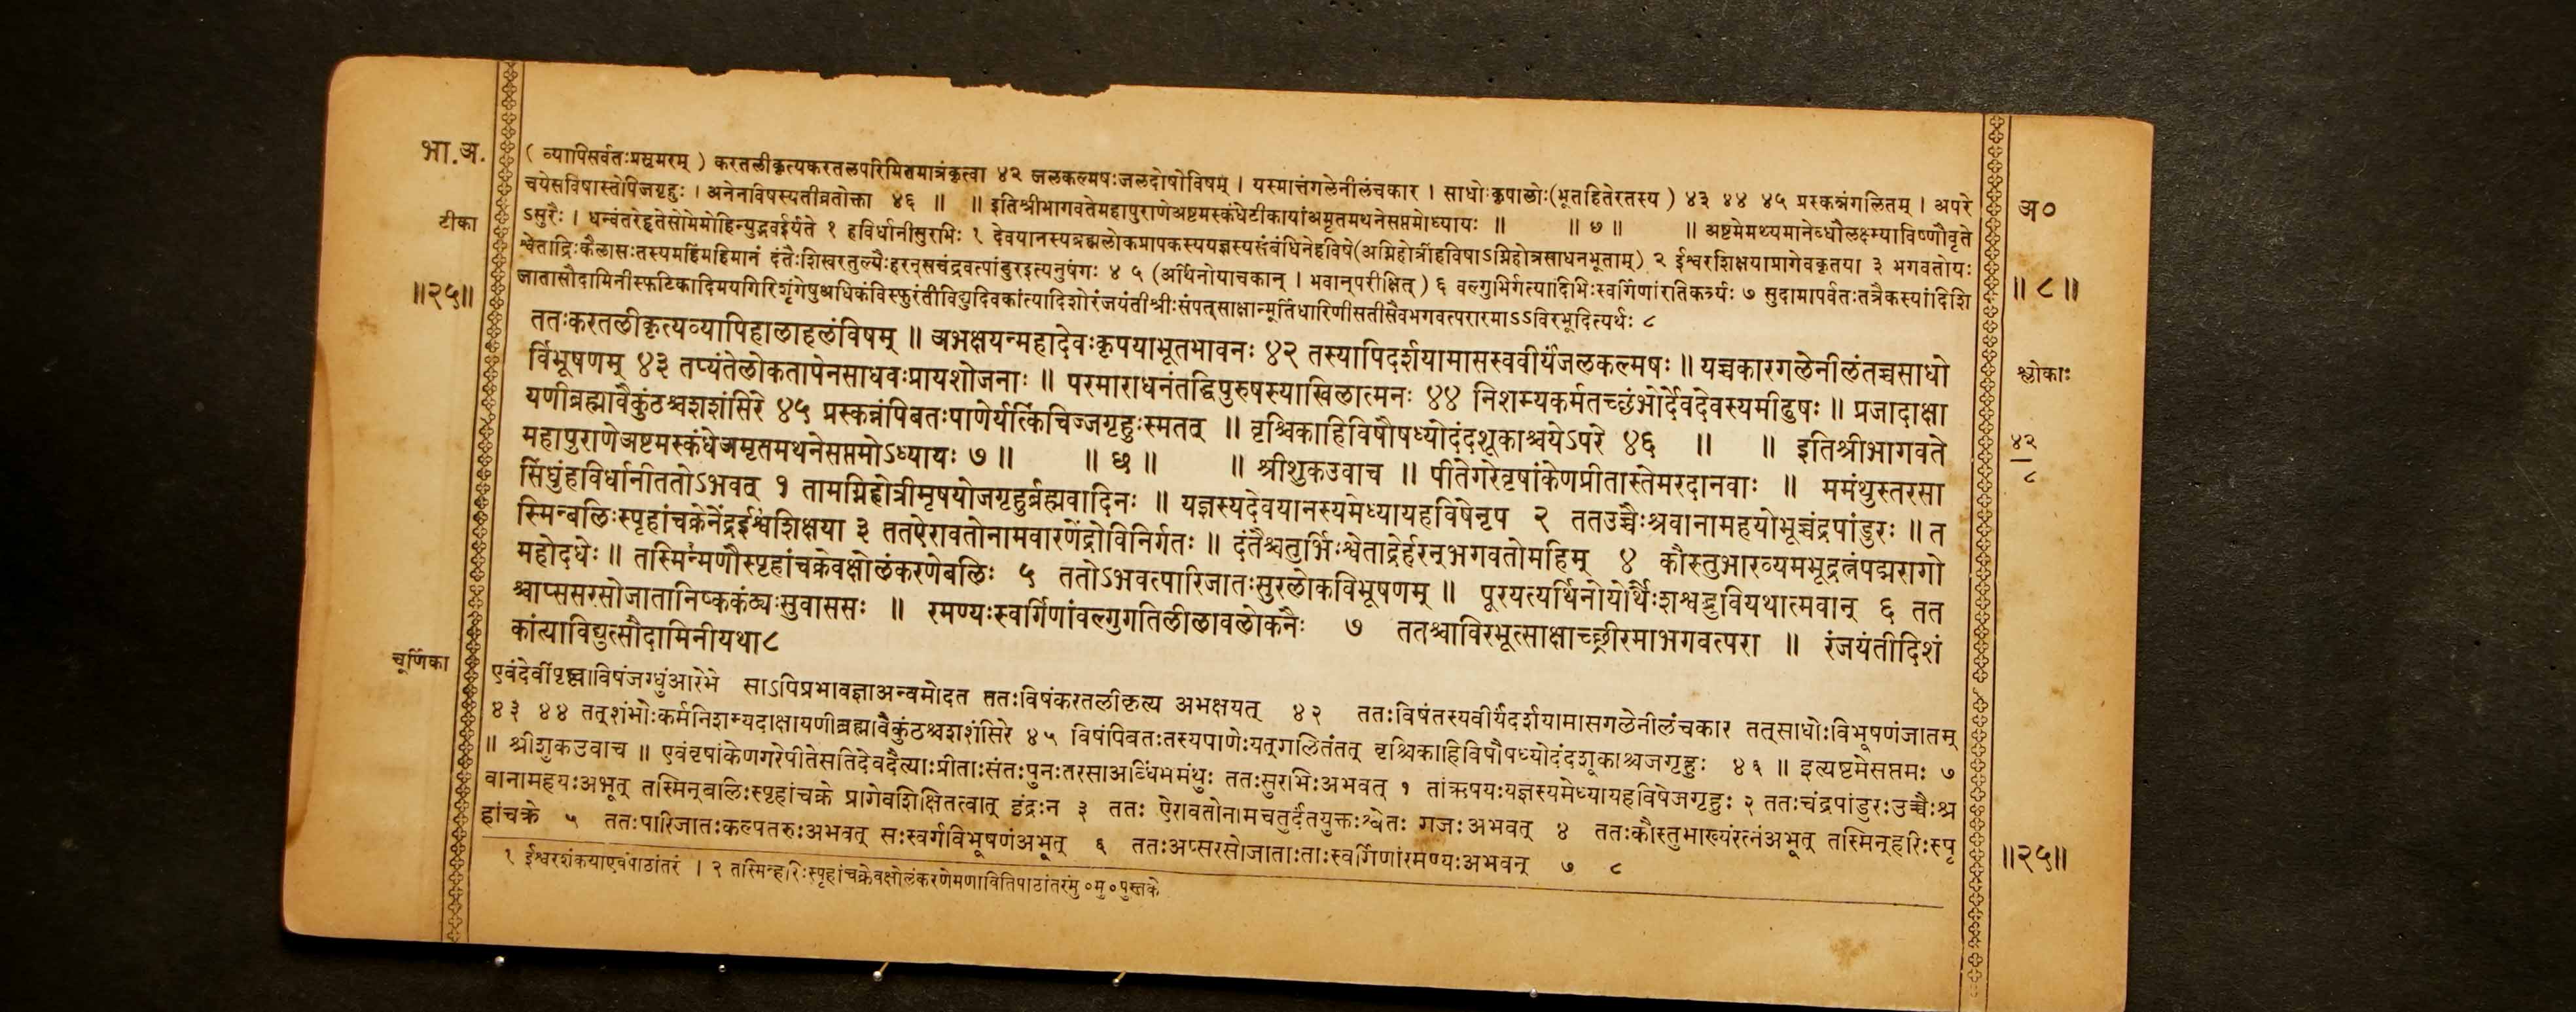 भा.अ.
टीका
॥२५॥
( व्यापिसर्वतःप्रसृमरम् ) करतलीकृत्यकरतलपरिमितमात्रंकृत्वा ४२ जलकल्मषःजलदोषोविषम् । यस्मात्तंगलेनीलंचकार । साधोःकृपालोः(भूतहितेरतस्य ) ४३ ४४ ४५ प्रस्कन्नंगलितम् । अपरे
चयेसविषास्तेपिजगृहुः । अनेनविषस्यतीव्रतोक्ता ४६ ॥ ॥ इतिश्रीभागवतेमहापुराणेअष्टमस्कंधेटीकायांअमृतमथनेसप्तमोध्यायः ॥ ॥ ७ ॥ ॥ अष्टमेमथ्यमानेब्धौलक्ष्म्याविष्णौवृते
ऽसुरैः । धन्वंतरेहृतेसोमेमोहिन्युद्भवईर्यते १ हविर्धानीसुरभिः १ देवयानस्यब्रह्मलोकप्रापकस्ययज्ञस्यसंबंधिनेहविषे(अग्निहोत्रींहविषाऽग्निहोत्रसाधनभूताम्) २ ईश्वरशिक्षयाप्रागेवकृतया ३ भगवतोयः
श्वेताद्रिःकैलासःतस्यमहिंमहिमानं दंतैःशिखरतुल्यैःहरन्सचंद्रवत्पांडुरइत्यनुषंगः ४ ५ (अर्थिनोयाचकान् । भवान्परीक्षित् ) ६ वल्गुभिर्गत्यादिभिःस्वर्गिणांरतिकर्त्र्यः ७ सुदामापर्वतःतत्रैकस्यांदिशि
जातासौदामिनीस्फटिकादिमयगिरिशृंगेषुअधिकंविस्फुरंतीविद्युदिवकांत्यादिशोरंजयंतीश्रीःसंपत्साक्षान्मूर्तिधारिणीसतीसैवभगवत्परारमाऽऽविरभूदित्यर्थः ८
ततःकरतलीकृत्यव्यापिहालाहलंविषम् ॥ अभक्षयन्महादेवःकृपयाभूतभावनः ४२ तस्यापिदर्शयामासस्ववीर्यंजलकल्मषः ॥ यच्चकारगलेनीलंतच्चसाधो
र्विभूषणम् ४३ तप्यंतेलोकतापेनसाधवःप्रायशोजनाः ॥ परमाराधनंतद्धिपुरुषस्याखिलात्मनः ४४ निशम्यकर्मतच्छंभोर्देवदेवस्यमीढुषः ॥ प्रजादाक्षा
यणीब्रह्मावैकुंठश्चशशंसिरे ४५ प्रस्कन्नंपिबतःपाणेर्यत्किंचिज्जगृहुःस्मतत् ॥ वृश्चिकाहिविषौषध्योदंदशूकाश्चयेऽपरे ४६ ॥ ॥ इतिश्रीभागवते
महापुराणेअष्टमस्कंधेअमृतमथनेसप्तमोऽध्यायः ७ ॥ ॥ छ ॥ ॥ श्रीशुकउवाच ॥ पीतेगरेवृषांकेणप्रीतास्तेमरदानवाः ॥ ममंथुस्तरसा
सिंधुंहविर्धानीततोऽभवत् १ तामग्निहोत्रीमृषयोजगृहुर्ब्रह्मवादिनः ॥ यज्ञस्यदेवयानस्यमेध्यायहविषेनृप २ ततउच्चैःश्रवानामहयोभूच्चंद्रपांडुरः ॥ त
स्मिन्बलिःस्पृहांचक्रेनेंद्रईश्वंशिक्षया ३ ततऐरावतोनामवारणेंद्रोविनिर्गतः ॥ दंतैश्चतुर्भिःश्वेताद्रेर्हरन्भगवतोमहिम् ४ कौस्तुभाख्यमभूद्रत्नंपद्मरागो
महोदधेः ॥ तस्मिन्मणौस्पृहांचक्रेवक्षोलंकरणेबलिः ५ ततोऽभवत्पारिजातःसुरलोकविभूषणम् ॥ पूरयत्यर्थिनोयोर्थैःशश्वद्भुवियथात्मवान् ६ तत
श्चाप्ससरसोजातानिष्ककंठ्यःसुवाससः ॥ रमण्यःस्वर्गिणांवल्गुगतिलीलावलोकनैः ७ ततश्चाविरभूत्साक्षाच्छ्रीरमाभगवत्परा ॥ रंजयंतीदिशं
कांत्याविद्युत्सौदामिनीयथा८
चूर्णिका
एवंदेवींपृष्ट्वाविषंजग्धुंआरेभे साऽपिप्रभावज्ञाअन्वमोदत ततःविषंकरतलीकृत्य अभक्षयत् ४२ ततःविषंतस्यवीर्यंदर्शयामासगलेनीलंचकार तत्साधोःविभूषणंजातम्
४३ ४४ तत्शंभोःकर्मनिशम्यदाक्षायणीब्रह्मावैकुंठश्चशशंसिरे ४५ विषंपिबतःतस्यपाणेःयत्गलितंतत् वृश्चिकाहिविषौषध्योदंदशूकाश्चजगृहुः ४६ ॥ इत्यष्टमेसप्तमः ७
॥ श्रीशुकउवाच ॥ एवंवृषांकेणगरेपीतेसतिदेवदैत्याःप्रीताःसंतःपुनःतरसाअब्धिंममंथुः ततःसुरभिःअभवत् १ तांऋषयःयज्ञस्यमेध्यायहविषेजगृहुः २ ततःचंद्रपांडुरःउच्चैःश्र
वानामहयःअभूत् तस्मिन्बालिःस्पृहांचक्रे प्रागेवशिक्षितत्वात् इंद्रःन ३ ततः ऐरावतोनामचतुर्दंतयुक्तःश्वेतः गजःअभवत् ४ ततःकौस्तुभाख्यंरत्नंअभूत् तस्मिन्हरिःस्पृ
हांचक्रे ५ ततःपारिजातःकल्पतरुःअभवत् सःस्वर्गविभूषणंअभूत् ६ ततःअप्सरसोजाताःताःस्वर्गिणांरमण्यःअभवन् ७ ८
१ ईश्वरशंकयाएवंपाठांतरं । २ तस्मिन्हरिःस्पृहांचक्रेवक्षोलंकरणेमणावितिपाठांतरंमु०मु०पुस्तके
अ०
॥ ८ ॥
श्लोकाः
४२
८
॥२५॥